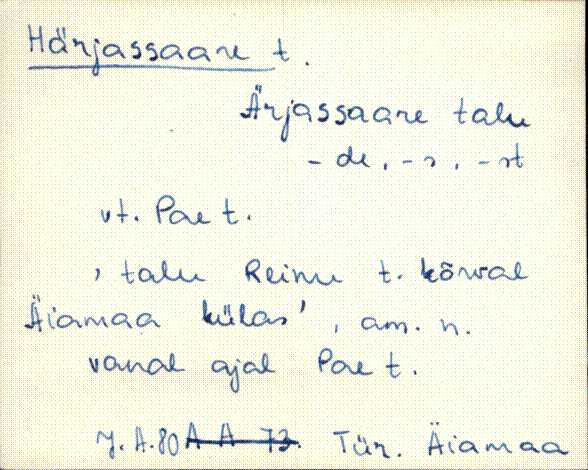 Härjassaare t.
Ärjassaare talu
- de, - s, - st
vt. Pae t.
, talu Reinu t. kõrval
Äiamaa külas', am. n.
vanal ajal Pae t.
J. A. 80 A A 73. Tür. Äiamaa